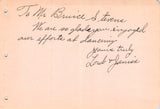 To Mr. Bruce Stevens
We are so glad you enjoyed
our efforts at dancing
Yours truly
Lord & Janice